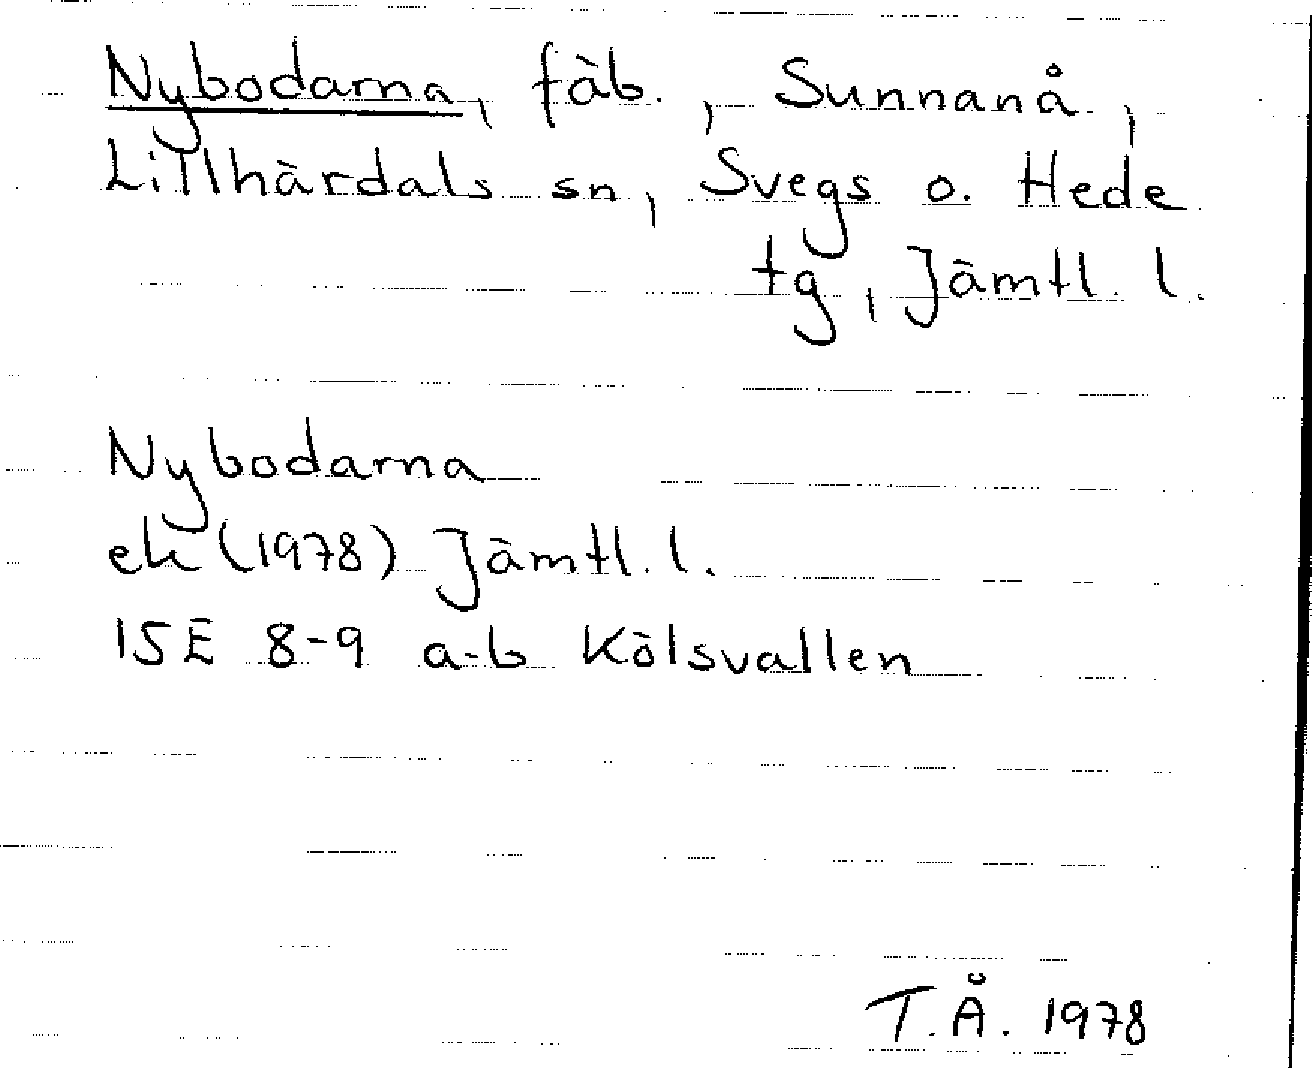 Nybodarna, fäb., Sunnanå,
Lillhärdals sn, Svegs o. Hede
tg, Jämtl. l.
Nybodarna
ek (1978) Jämtl. l.
15E 8-9 a-b Kölsvallen
T.Å. 1978